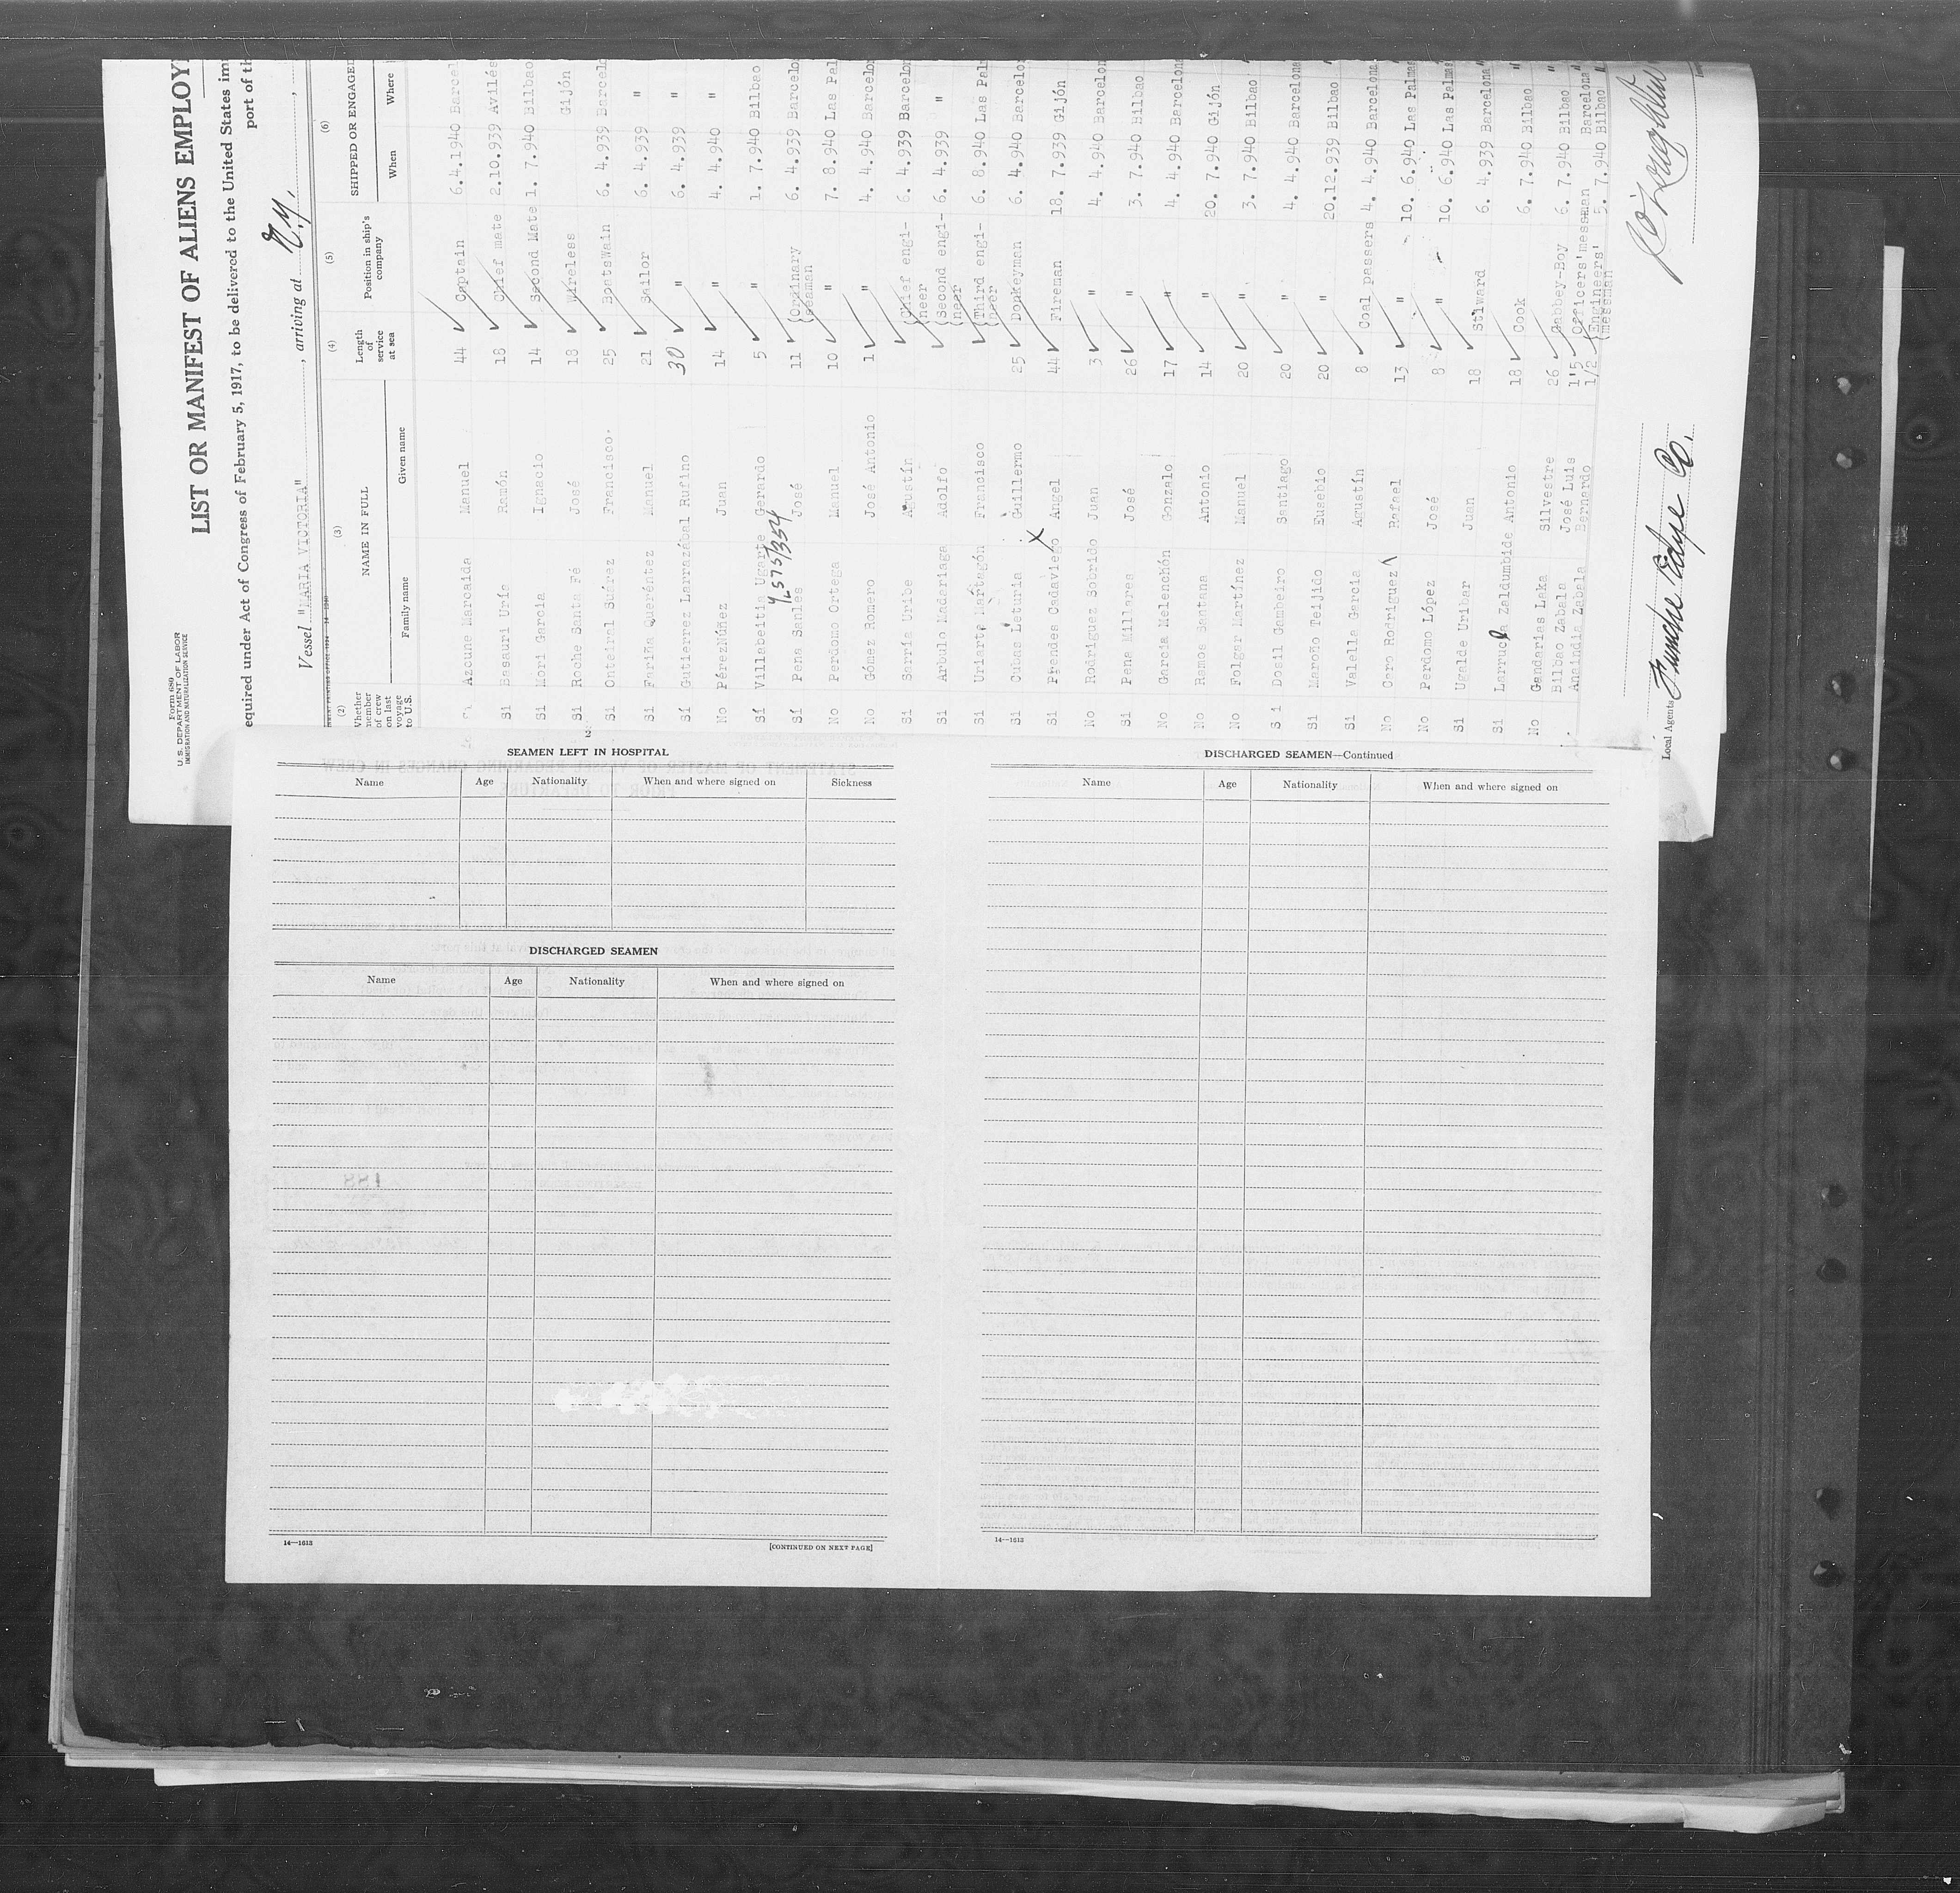 Form 689
U. S. DEPARTMENT OF LABOR
IMMIGRATION AND NATURALIZATION SERVICE
LIST OR MANIFEST OF ALIENS EMPLOY
equired under Act of Congress of February 5, 1917, to be delivered to the United States im
port of th
Vessel "MARIA VICTORIA", arriving at N.Y.,
(2) (3) (4) (5) (6)
Whether member of crew on last voyage to U.S. NAME IN FULL Length of service at sea Position in ship's company SHIPPED OR ENGAGED
Family name Given name When Where
Si Azcune Marcaida Manuel 44 Captain 6.4.1940 Barcel
Si Basauri Uría Ramón 18 Chief mate 2.10.939 Avilés
Si Mori Garcia Ignacio 14 Second Mate 1. 7.940 Bilbao
Si Roche Santa Fé José 18 Wireless Gijón
Si Onteiral Suárez Francisco. 25 Boatswain 6. 4.939 Barcelo
Si Fariña Queréntez Manuel 21 Sailor 6. 4.939 "
Sí Gutierrez Larrazábal Rufino 30 " 6. 4.939 "
No Péreznúñez Juan 14 " 4. 4.940 "
Sí Villabeitia Ugarte Gerardo 5 " 1. 7.940 Bilbao
4573/354
Sí Pena Sanles José 11 (Ordinary seaman 6. 4.939 Barcelo
No Perdomo Ortega Manuel 10 " 7. 8.940 Las Pal
No Gómez Romero José Antonio 1 " 4. 4.940 Barcelon
Si Barria Uribe Agustín (Chief engi- neer 6. 4.939 Barcelon
Si Arbulo Madariaga Adolfo (Second engi- neer 6. 4.939 "
Si Uriarte Martagón Francisco (Third engi- neer 6. 8.940 Las Pal
Si Cubas Leturia Guillermo 25 Donkeyman 6. 4.940 Barcelo
Si Prendes Cadaviego X Angel 44 Fireman 18. 7.939 Gijón
No Rodriguez Sobrido Juan 3 " 4. 4.940 Barcelon
Si Pena Millares José 26 " 3. 7.940 Bilbao
No Garcia Melenchón Gonzalo 17 " 4. 4.940 Barcelona
No Ramos Santana Antonio 14 20. 7.940 Gijón
No Folgar Martínez Manuel 20 " 3. 7.940 Bilbao
S i Dosil Gambeiro Santiago 20 " 4. 4.940 Barcelona
Si Maroño Teijido Eusebio 20 " 20.12.939 Bilbao
Si Valella Garcia Agustín 8 Coal passers 4. 4.940 Barcelona
No Caro Rodriguez Rafael 13 " 10. 6.940 Las Palmas
No Perdomo López José 8 " 10. 6.940 Las Palmas
Si Ugalde Uribar Juan 18 Stiward 6. 4.939 Barcelona
Si Larrucea Zaldumbide Antonio 18 Cook 6. 7.940 Bilbao
No Gadarias Laka Silvestre 26 Gabbey-Boy 6. 7.940 Bilbao
Bilbao Zabala José Luis 1'5 Officers'messman Barcelona
Anaindia Zabala Bernardo 1/2 (Engineers' messman 5. 7.940 Bilbao
Local Agents Funche Edye Co.
SEAMEN LEFT IN HOSPITAL
Name Age Nationality When and where signed on Sickness
DISCHARGED SEAMEN
Name Age Nationality When and where signed on
14—1613 [CONTINUED ON NEXT PAGE]
DISCHARGED SEAMEN—Continued
Name Age Nationality When and where signed on
14—1613